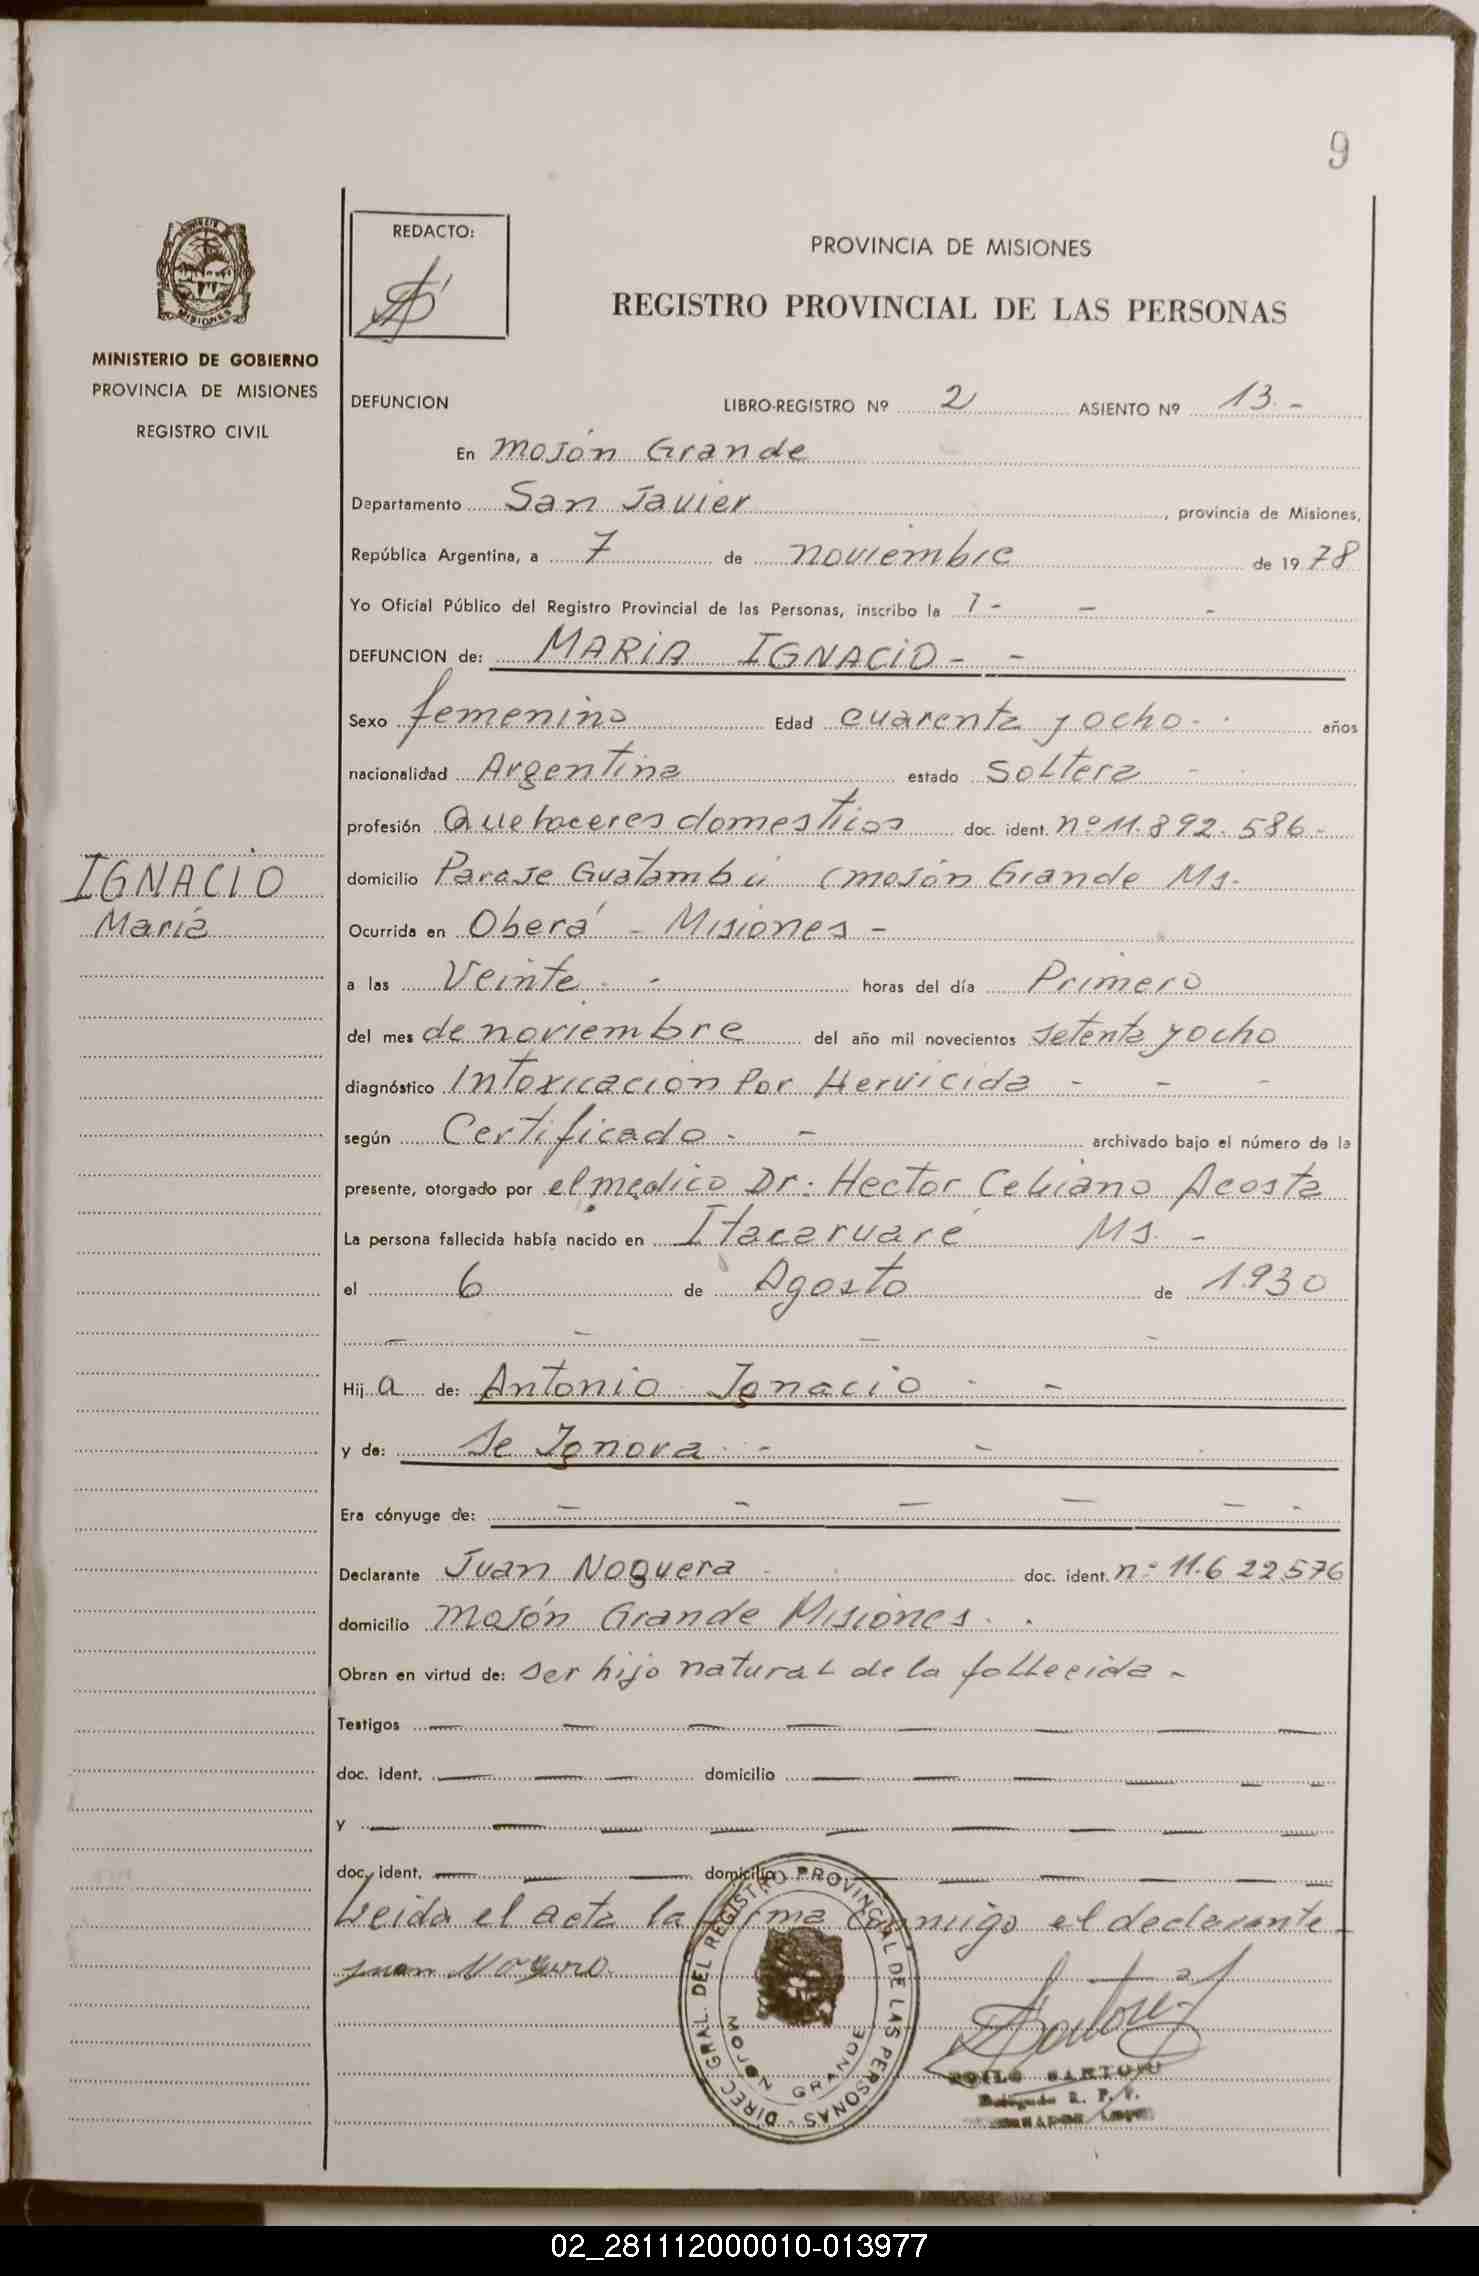 9
REDACTO:
PROVINCIA DE MISIONES
REGISTRO PROVINCIAL DE LAS PERSONAS
MISIONES
MINISTERIO DE GOBIERNO
PROVINCIA DE MISIONES
REGISTRO CIVIL
DEFUNCION LIBRO-REGISTRO Nº 2 ASIENTO Nº 13.-
En Mojón Grande
Departamento San Javier, provincia de Misiones,
República Argentina, a 7 de noviembre de 1978
Yo Oficial Público del Registro Provincial de las Personas, inscribo la - - -
DEFUNCION de: MARIA IGNACIO - -
Sexo femenino Edad cuarenta y ocho - . años
nacionalidad Argentina estado Soltera -
profesión Quehaceres domesticos doc. ident. nº 11.892.586-
domicilio Paraje Guatambú (Mojón Grande Ms-
IGNACIO
Maria
Ocurrida en Oberá - Misiones -
a las Veinte. - horas del día Primero
del mes de noviembre del año mil novecientos setenta y ocho
diagnóstico Intoxicacion Por Hervicida - - -
según Certificado - - archivado bajo el número de la
presente, otorgado por el medico Dr: Hector Celiano Acosta
La persona fallecida había nacido en Itacaruaré Ms. -
el 6 de Agosto de 1.930
- - - -
Hij a de: Antonio Ignacio - -
y de: Se Ignora . - -
Era cónyuge de: - - - - - -
Declarante Juan Noguera - doc. ident. nº 11.622.576
domicilio Mojón Grande Misiones. .
Obran en virtud de: ser hijo natural de la fallecida -
Testigos — — — — — — — —
doc. ident. — — — domicilio — — — — — —
y — — — — — — — — —
doc. ident. — — — domicilio — — — — —
Leida el acta la firma conmigo el declarante-
Juan Noguera
DIREC. GRAL. DEL REGISTRO PROVINCIAL DE LAS PERSONAS -
MOJON GRANDE
02_281112000010-013977